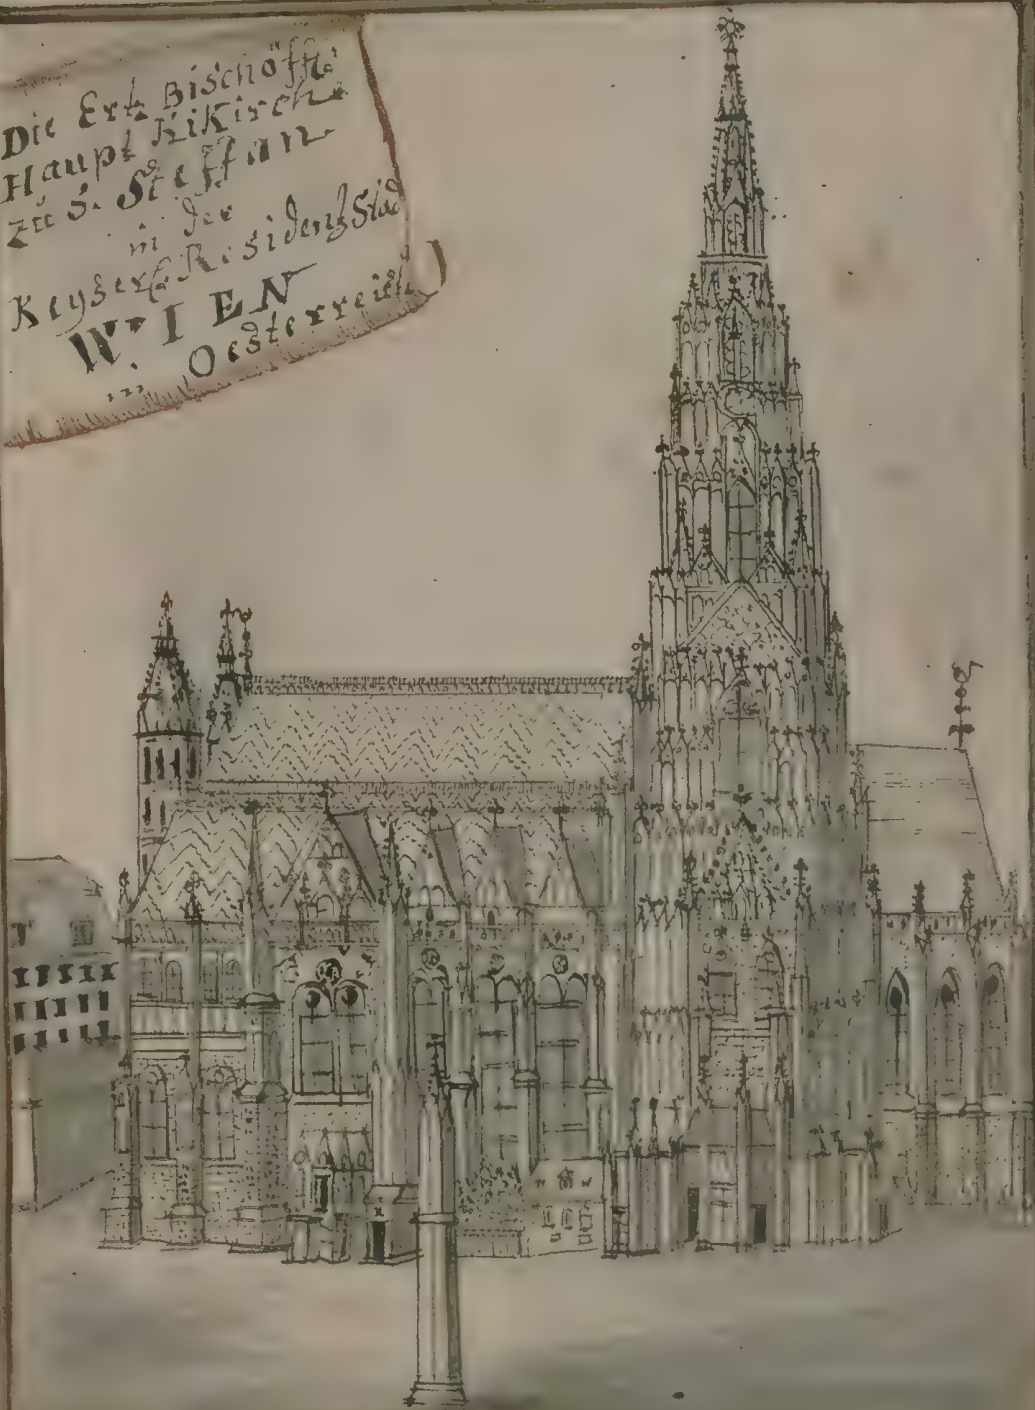 Die Ertz Bischöffl:
Haupt KiKirch
zu S. Steffan
in der
Keyserl Residentz Stad
WIEN
Oesterreich